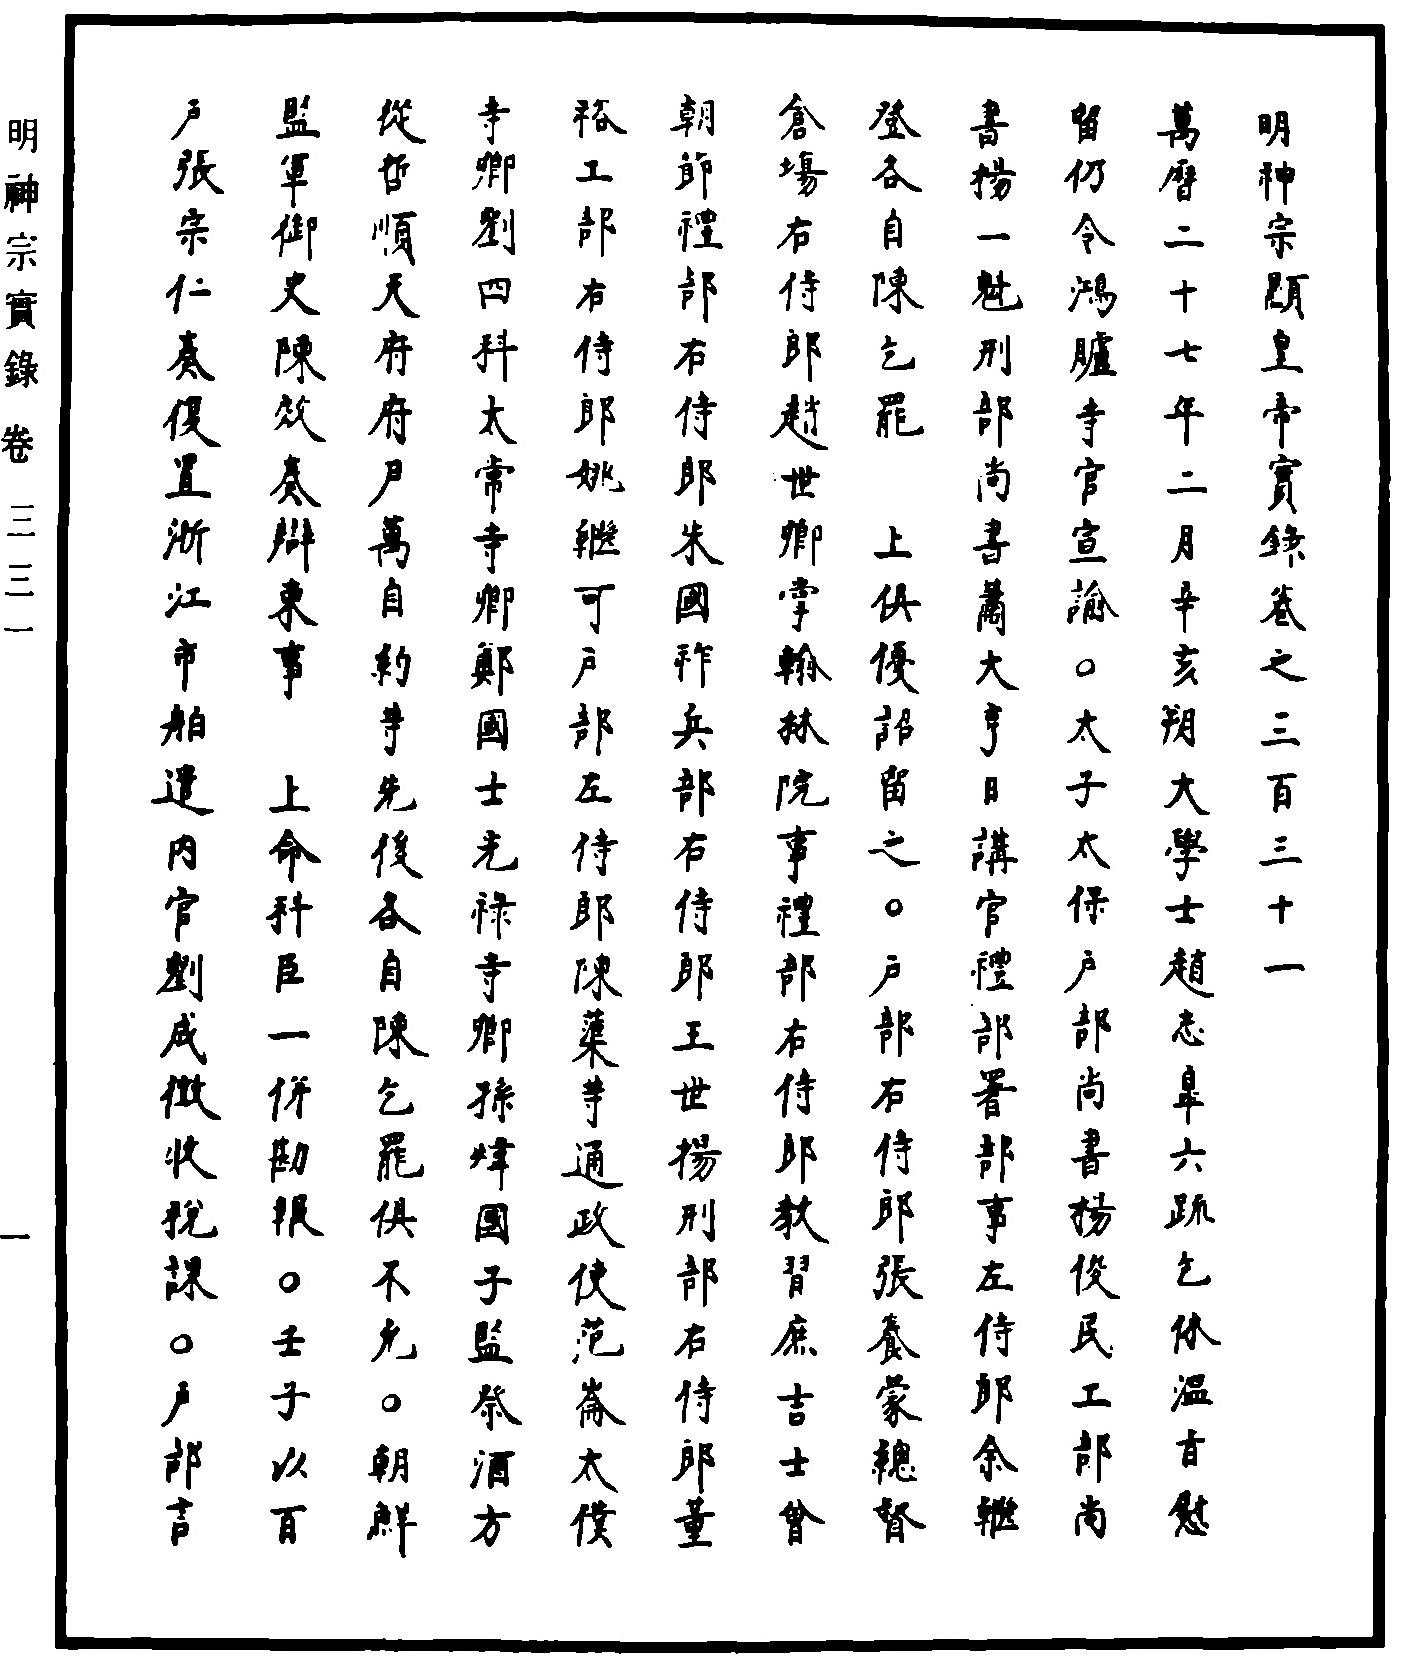 明神宗顯皇帝實錄卷之三百三十一
萬曆二十七年二月辛亥朔大學士趙志皐六疏乞休溫旨慰
留仍令鴻臚寺官宣諭○太子太保戶部尚書楊俊民工部尚
書揚一魁刑部尚書蕭大亨日講官禮部署部事左侍郎余繼
登各自陳乞罷　上俱優詔留之○戶部右侍郎張養蒙總督
倉場右侍郎趙世卿掌翰林院事禮部右侍郎教習庶吉士曾
朝節禮部右侍郎朱國祚兵部右侍郎王世揚刑部右侍郎董
裕工部右侍郎姚繼可戶部左侍郎陳蕖等通政使范崙太僕
寺卿劉四科太常寺卿鄭國士光祿寺卿孫煒國子監祭酒方
從哲順天府府尹萬自約等先後各自陳乞罷俱不允○朝鮮
監軍御史陳效奏辯東事　上命科臣一併勘報○壬子以百
戶張宗仁奏復置浙江市舶遣內官劉成徵收稅課○戶部言
明神宗實錄 卷 三三一
一